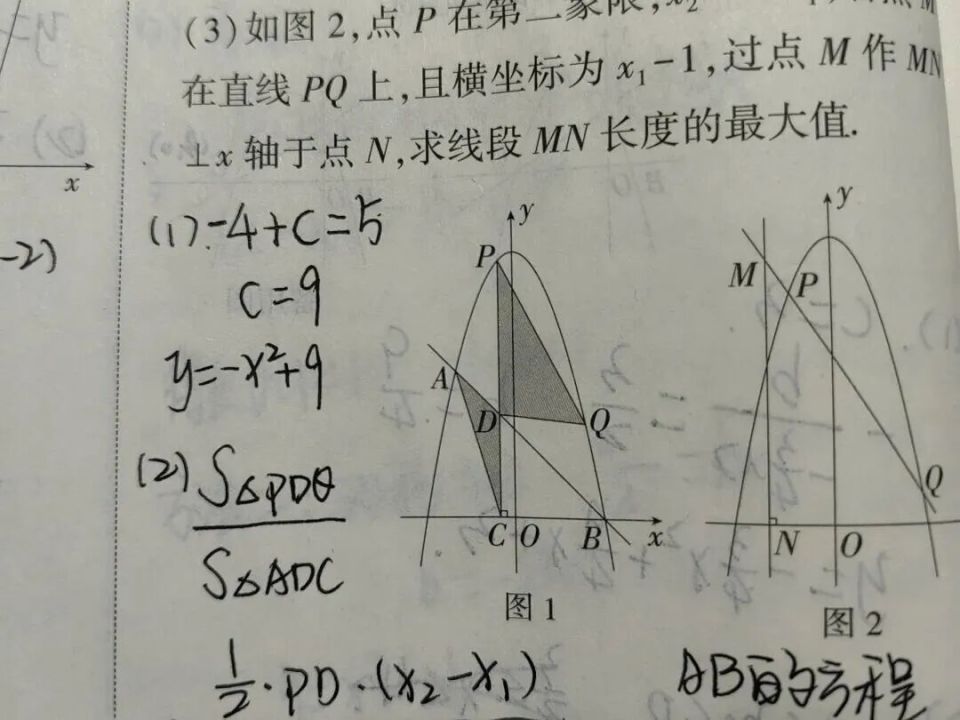 (3)如图2,点P在第二象限,x₂
在直线PQ上,且横坐标为x₁-1,过点M作MN
⊥x轴于点N,求线段MN长度的最大值.
x
-2)
(1).-4+C=5
C=9
y=-x²+9
(2) S△PDQ
S△ADC
½·PD·(x₂-x₁)
y
P
A
D
Q
C O B x
图1
y
M P
Q
N O
图2
AB的方程